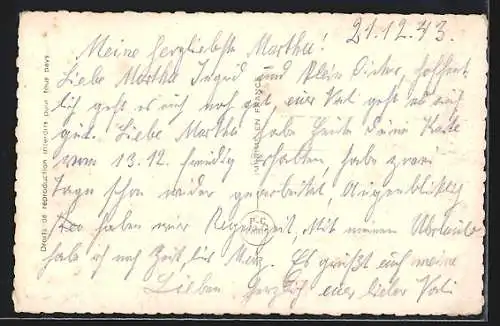 21.12.43.
Meine herzliebste Martha!
Liebe Martha Ingrid und klein Dieter, hoffent
lich geht es euch noch gut, euer Vati geht es auch
gut. Liebe Martha habe heute deine Karte
vom 13.12. freudig erhalten, habe zwei
Tage schon wieder gearbeitet, Augenblicklich
haben wir Regenzeit. Mit meinem Urlaub
hab ich noch Zeit bis März. Es grüßt euch meine
Lieben herzlich euer lieber Vati
Droits de reproduction interdits pour tous pays